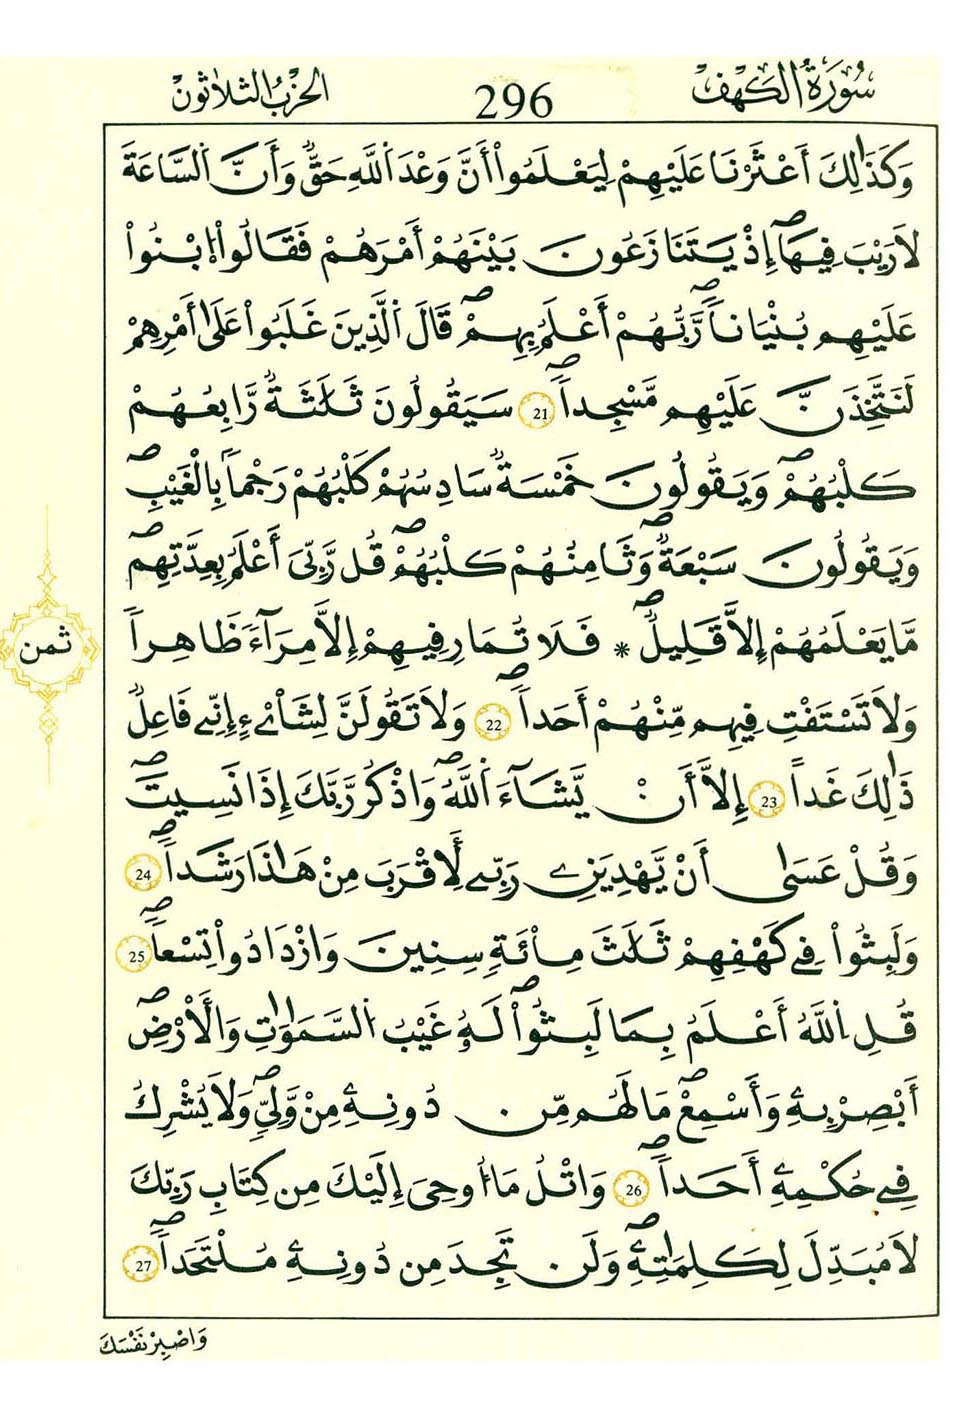 سُورَةُ الْكَهْفِ 296 الحِزْبُ الثَّلاَثُونَ
وَكَذَٰلِكَ أَعْثَرْنَا عَلَيْهِمْ لِيَعْلَمُواْ أَنَّ وَعْدَ اَللَّهِ حَقٌّ وَأَنَّ اَلسَّاعَةَ
لاَ رَيْبَ فِيهَآ إِذْ يَتَنَازَعُونَ بَيْنَهُمْ أَمْرَهُمْ فَقَالُواْ اُبْنُواْ
عَلَيْهِم بُنْيَاناً رَّبُّهُمْ أَعْلَمُ بِهِمْ قَالَ اَلَّذِينَ غَلَبُواْ عَلَىٰ أَمْرِهِمْ
لَنَتَّخِذَنَّ عَلَيْهِم مَّسْجِداً 21 سَيَقُولُونَ ثَلَٰثَةٌ رَّابِعُهُمْ
كَلْبُهُمْ وَيَقُولُونَ خَمْسَةٌ سَادِسُهُمْ كَلْبُهُمْ رَجْماً بِالْغَيْبِ
وَيَقُولُونَ سَبْعَةٌ وَثَامِنُهُمْ كَلْبُهُمْ قُل رَّبِّيَ أَعْلَمُ بِعِدَّتِهِم
مَّا يَعْلَمُهُمْ إِلاَّ قَلِيلٌ * فَلاَ تُمَارِ فِيهِمْ إِلاَّ مِرَآءً ظَاهِراً
وَلاَ تَسْتَفْتِ فِيهِم مِّنْهُمْ أَحَداً 22 وَلاَ تَقُولَنَّ لِشَاْےْءٍ إِنِّے فَاعِلٌ
ذَٰلِكَ غَداً 23 إِلاَّ أَنْ يَّشَآءَ اَللَّهُ وَاذْكُر رَّبَّكَ إِذَا نَسِيتَ
وَقُلْ عَسَىٰ أَنْ يَّهْدِيَنِے رَبِّے لِأَقْرَبَ مِنْ هَٰذَا رَشَداً 24
وَلَبِثُواْ فِے كَهْفِهِمْ ثَلَٰثَ مِاْئَةٍ سِنِينَ وَازْدَادُواْ تِسْعاً 25
قُلِ اِللَّهُ أَعْلَمُ بِمَا لَبِثُواْ لَهُۥ غَيْبُ اُلسَّمَٰوَٰتِ وَالْأَرْضِ
أَبْصِرْ بِهِۦ وَأَسْمِعْ مَا لَهُم مِّن دُونِهِۦ مِنْ وَّلِيٍّ وَلاَ يُشْرِكُ
فِے حُكْمِهِۦٓ أَحَداً 26 وَاتْلُ مَآ أُوحِيَ إِلَيْكَ مِن كِتَابِ رَبِّكَ
لاَ مُبَدِّلَ لِكَلِمَٰتِهِۦ وَلَن تَجِدَ مِن دُونِهِۦ مُلْتَحَداً 27
ثمن
وَاصْبِرْ نَفْسَكَ